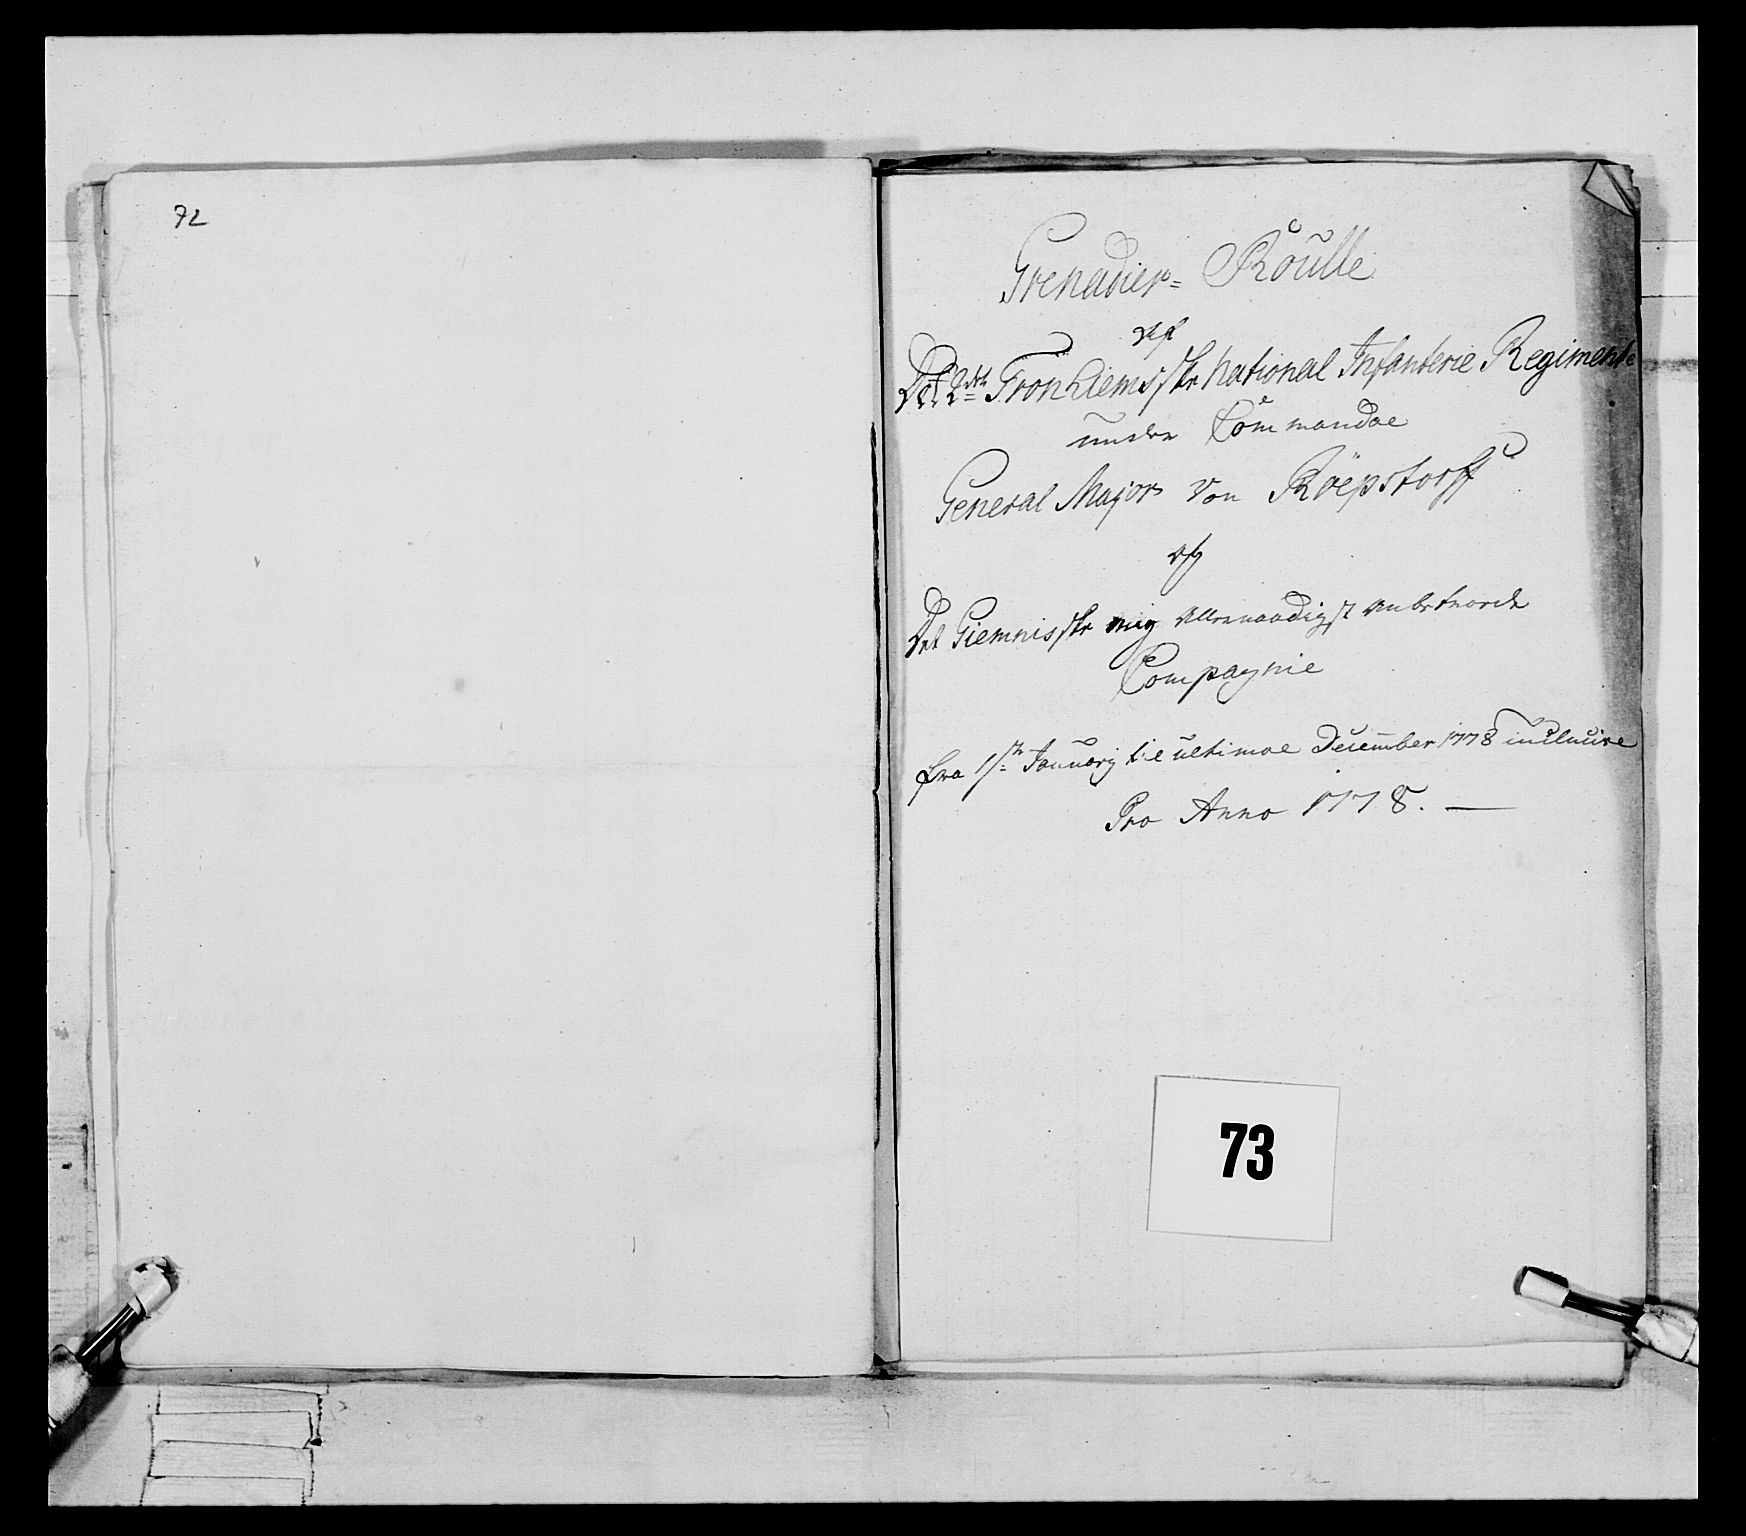 72
Grenadier= Roulle
af
Det 2det Trondiemske National Infanterie Regimente
under Commando
General Major von Röepstorff
og
Det Giemnisske mig Allernaadigst anbetroede
Compagnie
fra 1ste January til ultimoe December 1778 inclusive
Pro Anno 1778. —
73